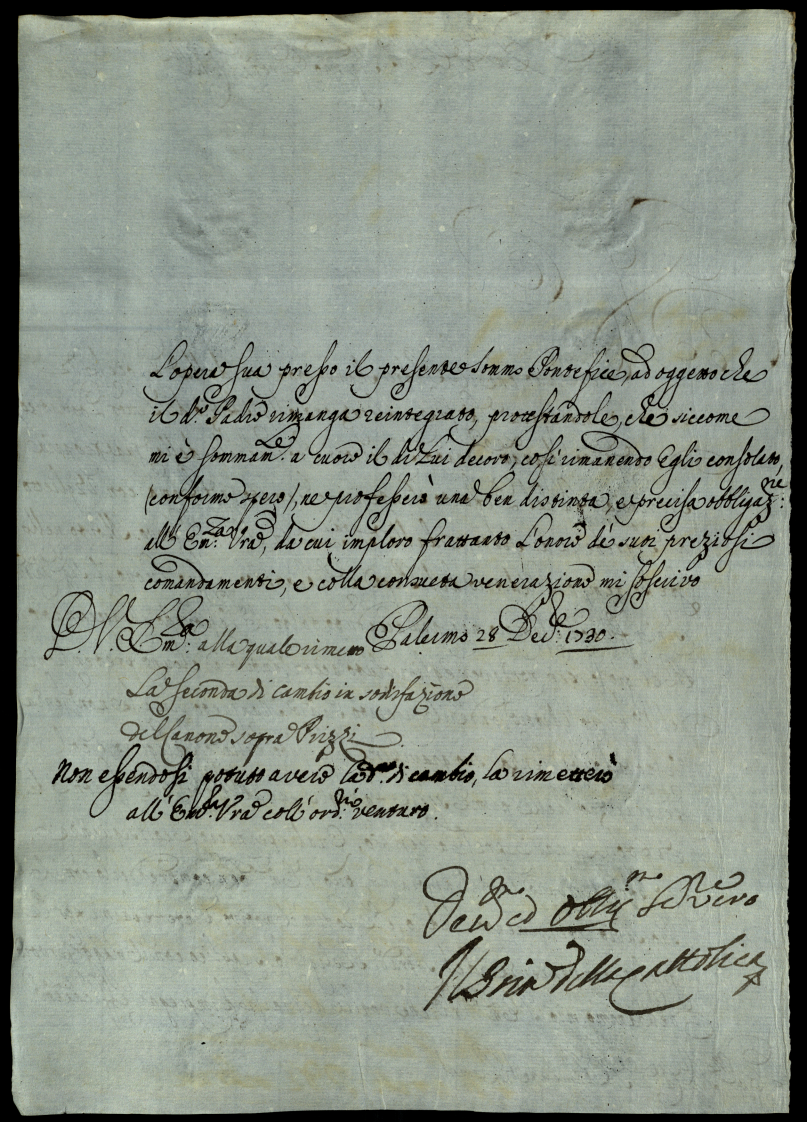 L'opera sua presso il presente Sommo Pontefice, ad oggetto che
il d.º Padre rimanga reintegrato, protestandole, che siccome
mi è sommam.te a cuore il di Lui decoro, così rimanendo Egli consolato,
(conforme spero), ne professerò una ben distinta, e precisa obbligaz.ne
all' Em.za Vra, da cui imploro frattanto l'onore de' suoi preziosi
comandamenti, e colla consueta venerazione mi soscrivo
D. V. Em.a alla quale rimetto Palermo 28 Dec.e 1730.
La seconda di cambio in sodisfazione
del Canone sopra Prizzi
Non essendosi potuto avere la d.a di cambio, la rimetterò
all' Em.za Vra coll' ord.rio venturo.
Dev.mo ed Obb.mo Ser.re vero
Il Prin della Cattolica